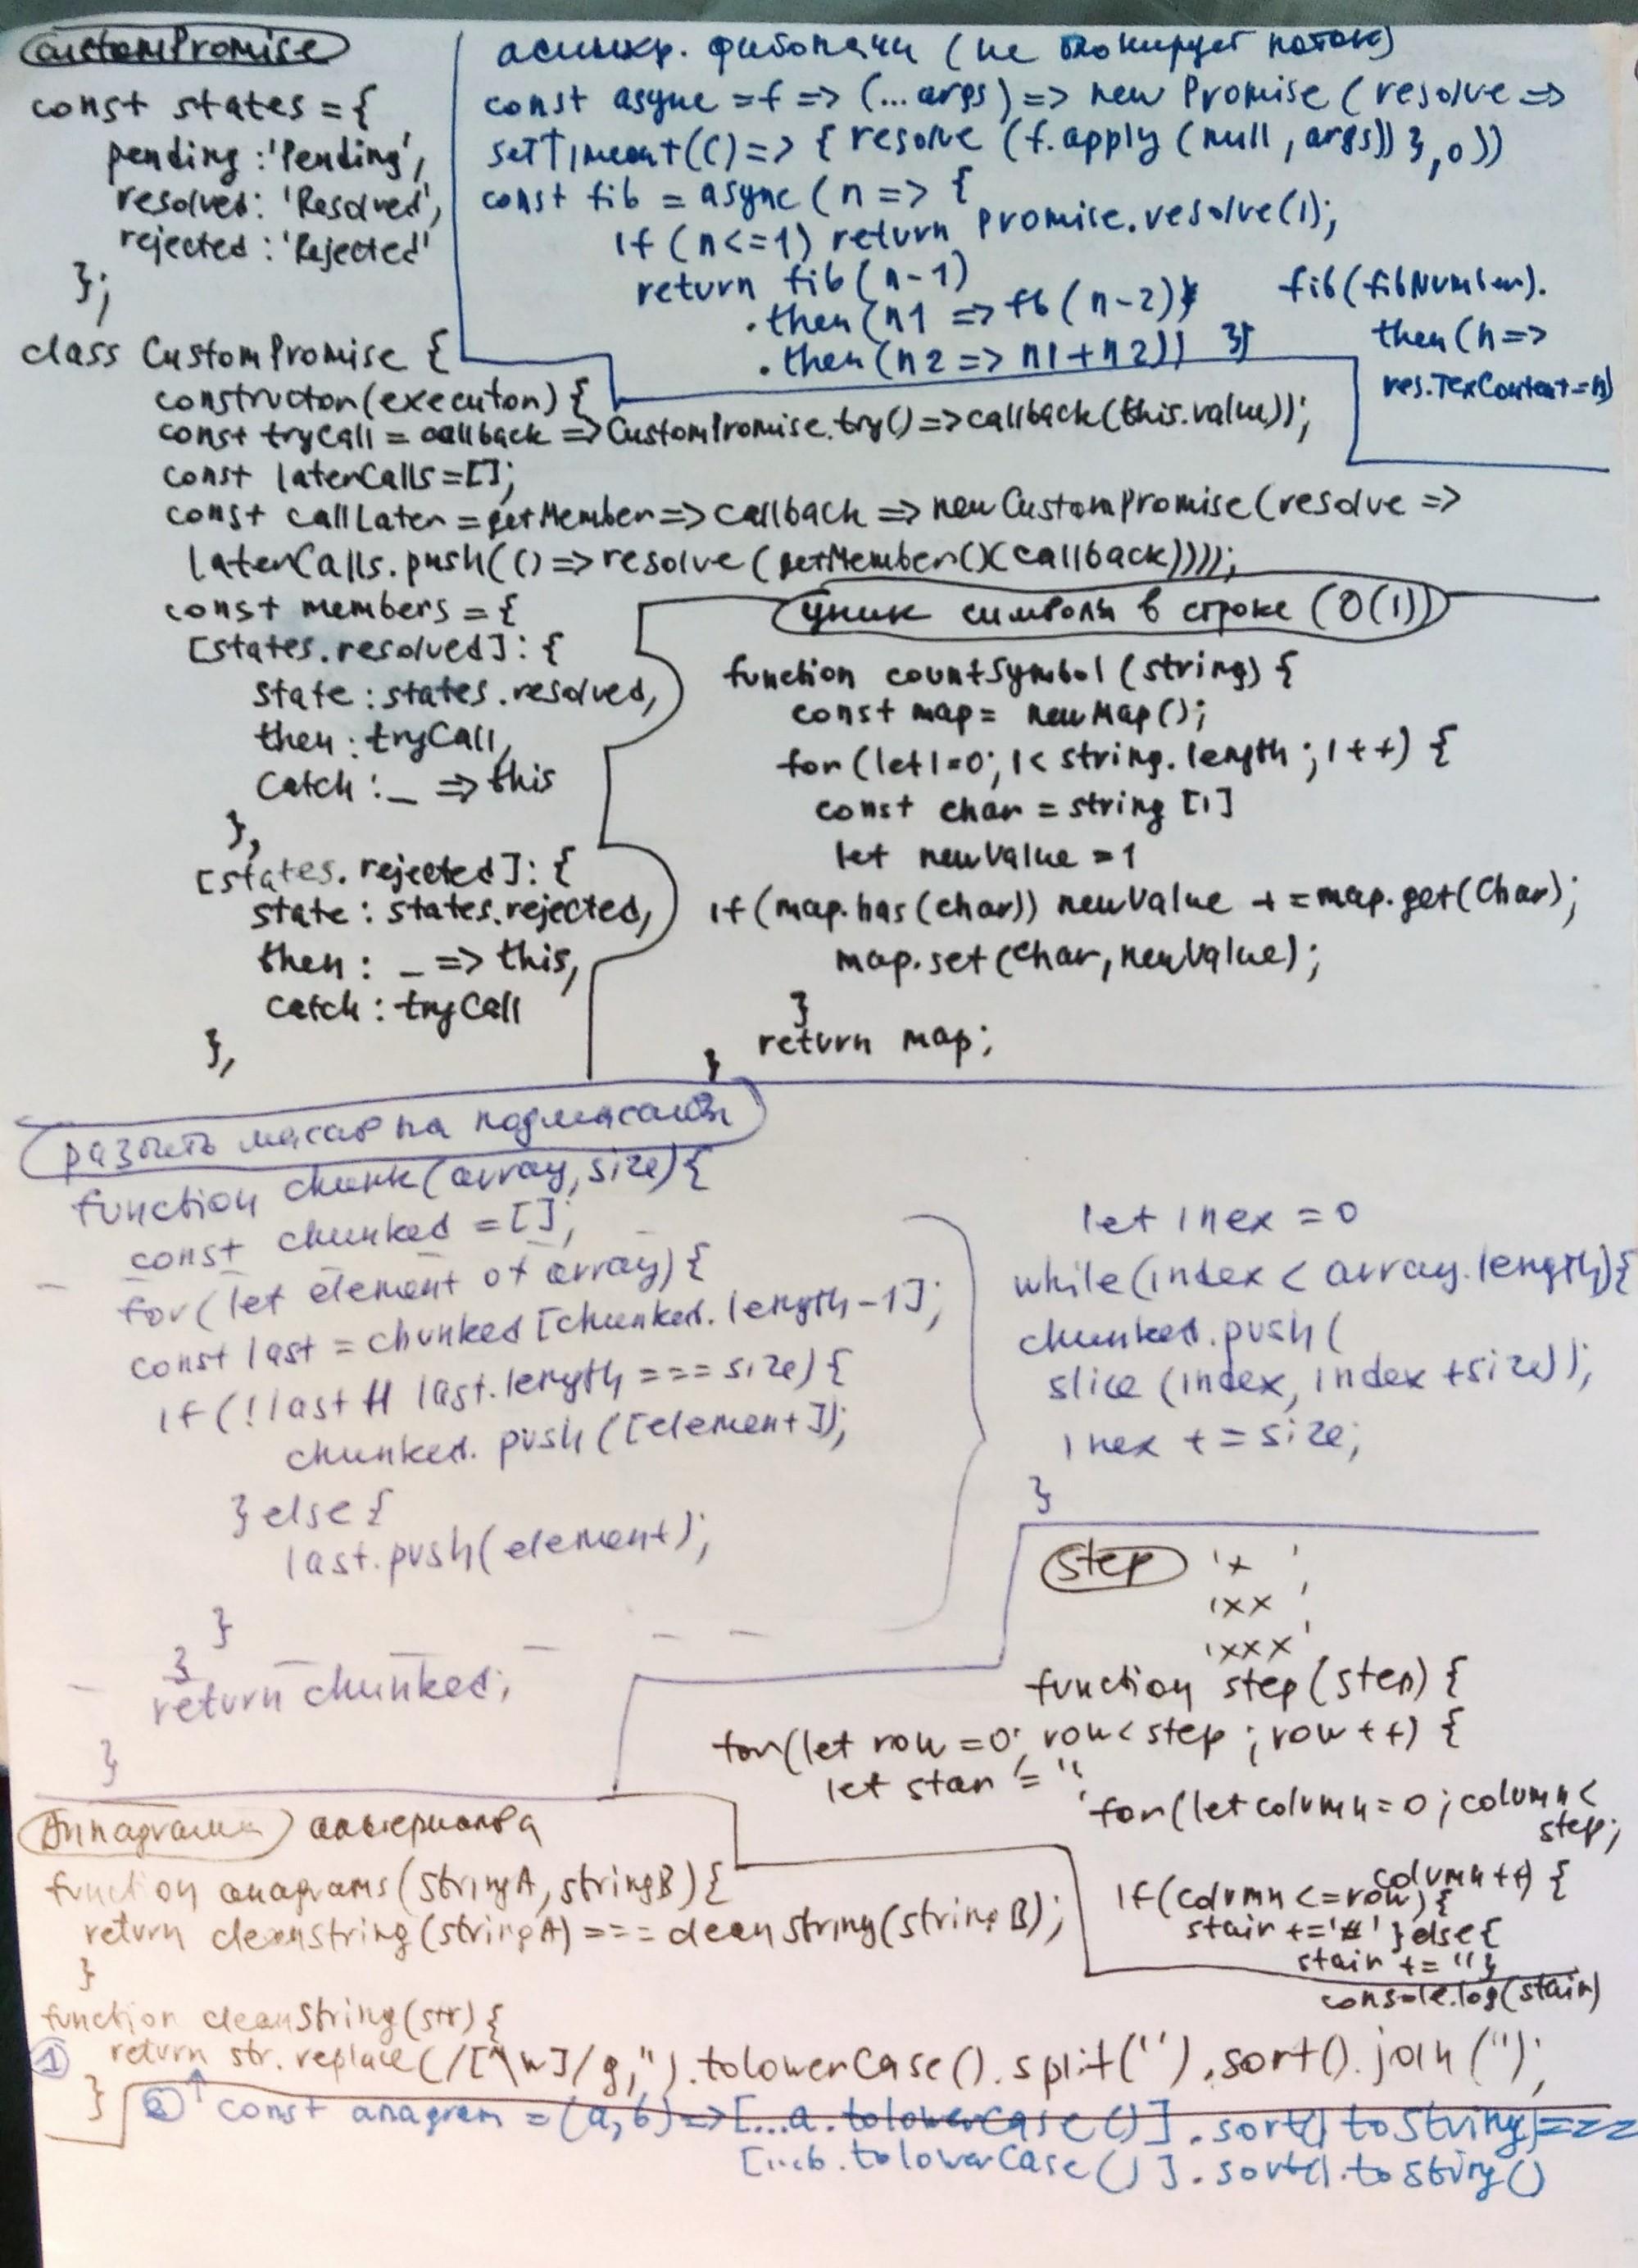 customPromise
const states = {
pending : 'Pending',
resolved : 'Resolved',
rejected : 'Rejected'
};
class CustomPromise {
constructor(executor) {
const tryCall = callback => CustomPromise.try(() => callback(this.value));
const laterCalls = [];
const callLater = getMember => callback => new CustomPromise(resolve =>
laterCalls.push(() => resolve (getMember()(callback))));
const members = {
[states.resolved] : {
state : states.resolved,
then : tryCall,
catch : _ => this
},
[states.rejected] : {
state : states.rejected,
then : _ => this,
catch : tryCall
},
асинхр. фибоначи (не блокирует поток)
const async = f => (...args) => new Promise (resolve =>
setTimeout(() => { resolve (f.apply (null, args)) }, 0))
const fib = async (n => {
if (n <= 1) return Promise.resolve(1);
return fib(n-1)
.then(n1 => fib(n-2))
.then(n2 => n1+n2)) })
fib(fibNumber).
then(n =>
res.TexContent = n)
уник символы в строке (O(1))
function countSymbol (string) {
const map = new Map();
for (let i=0; i< string.length ; i++) {
const char = string [i]
let newValue = 1
if (map.has(char)) newValue += map.get(char);
map.set(char, newValue);
}
return map;
}
разбить масив на подмасивы
function chunk(array, size) {
const chunked = [];
for (let element of array) {
const last = chunked [chunked.length-1];
if (!last || last.length === size) {
chunked.push ([element]);
} else {
last.push(element);
}
}
return chunked;
}
let inex = 0
while (index < array.length) {
chunked.push (
slice (index, index + size));
inex += size;
}
step 'x '
'xx '
'xxx'
function step (step) {
for (let row = 0; row < step ; row++) {
let stair = '';
for (let column = 0 ; column <
step;
column++) {
if (column <= row) {
stair += '#' } else {
stair += '' }
console.log(stair)
Аннаграма
function anagrams (stringA, stringB) {
return cleanstring (stringA) === cleanString(stringB);
}
function cleanString (str) {
① return str.replace(/[^\w]/g,'').tolowerCase().split('').sort().join('');
}
② const anagram = (a, b) => [...a.tolowerCase()].sort() toString) ===
[...b.tolowerCase()].sort().toString()